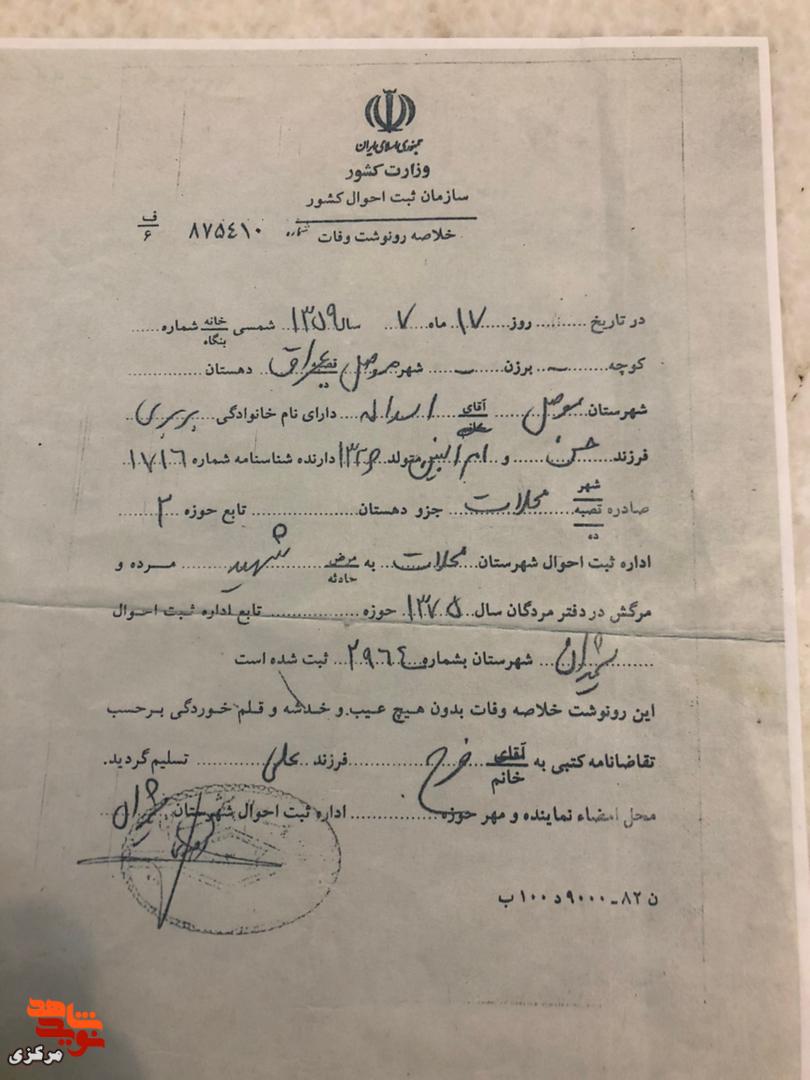 جمهوری اسلامی ایران
وزارت کشور
سازمان ثبت احوال کشور
خلاصه رونوشت وفات شماره ۸۷۵۴۱۰ ف/۶
در تاریخ ............ روز ..... ۱۷ ماه ۷ ... سال ۱۳۵۹ شمسی خانه/بنگاه شماره ......
کوچه ....... برزن ....... شهر/قصبه/ده موصل عراق دهستان ..................
شهرستان موصل آقای/خانم اسداله دارای نام خانوادگی بربری
فرزند حسن و ام البنین متولد دارنده شناسنامه شماره ۱۷۱۶
صادره شهر/قصبه/ده محلات جزو دهستان .................. تابع حوزه ۲
اداره ثبت احوال شهرستان محلات به مرض/حادثه شهید مرده و
مرگش در دفتر مردگان سال ۱۳۷۵ حوزه ............... تابع اداره ثبت احوال
شمیران شهرستان بشماره ۲۹۶۴ ثبت شده است
این رونوشت خلاصه وفات بدون هیچ عیب و خدشه و قلم خوردگی برحسب
تقاضانامه کتبی به آقای/خانم فرخ فرزند علی تسلیم گردید.
محل امضاء نماینده و مهر حوزه ............... اداره ثبت احوال شهرستان
ن ۸۲ ـ ۹۰۰۰ د ۱۰۰ ب
نوید شاهد
مرکزی